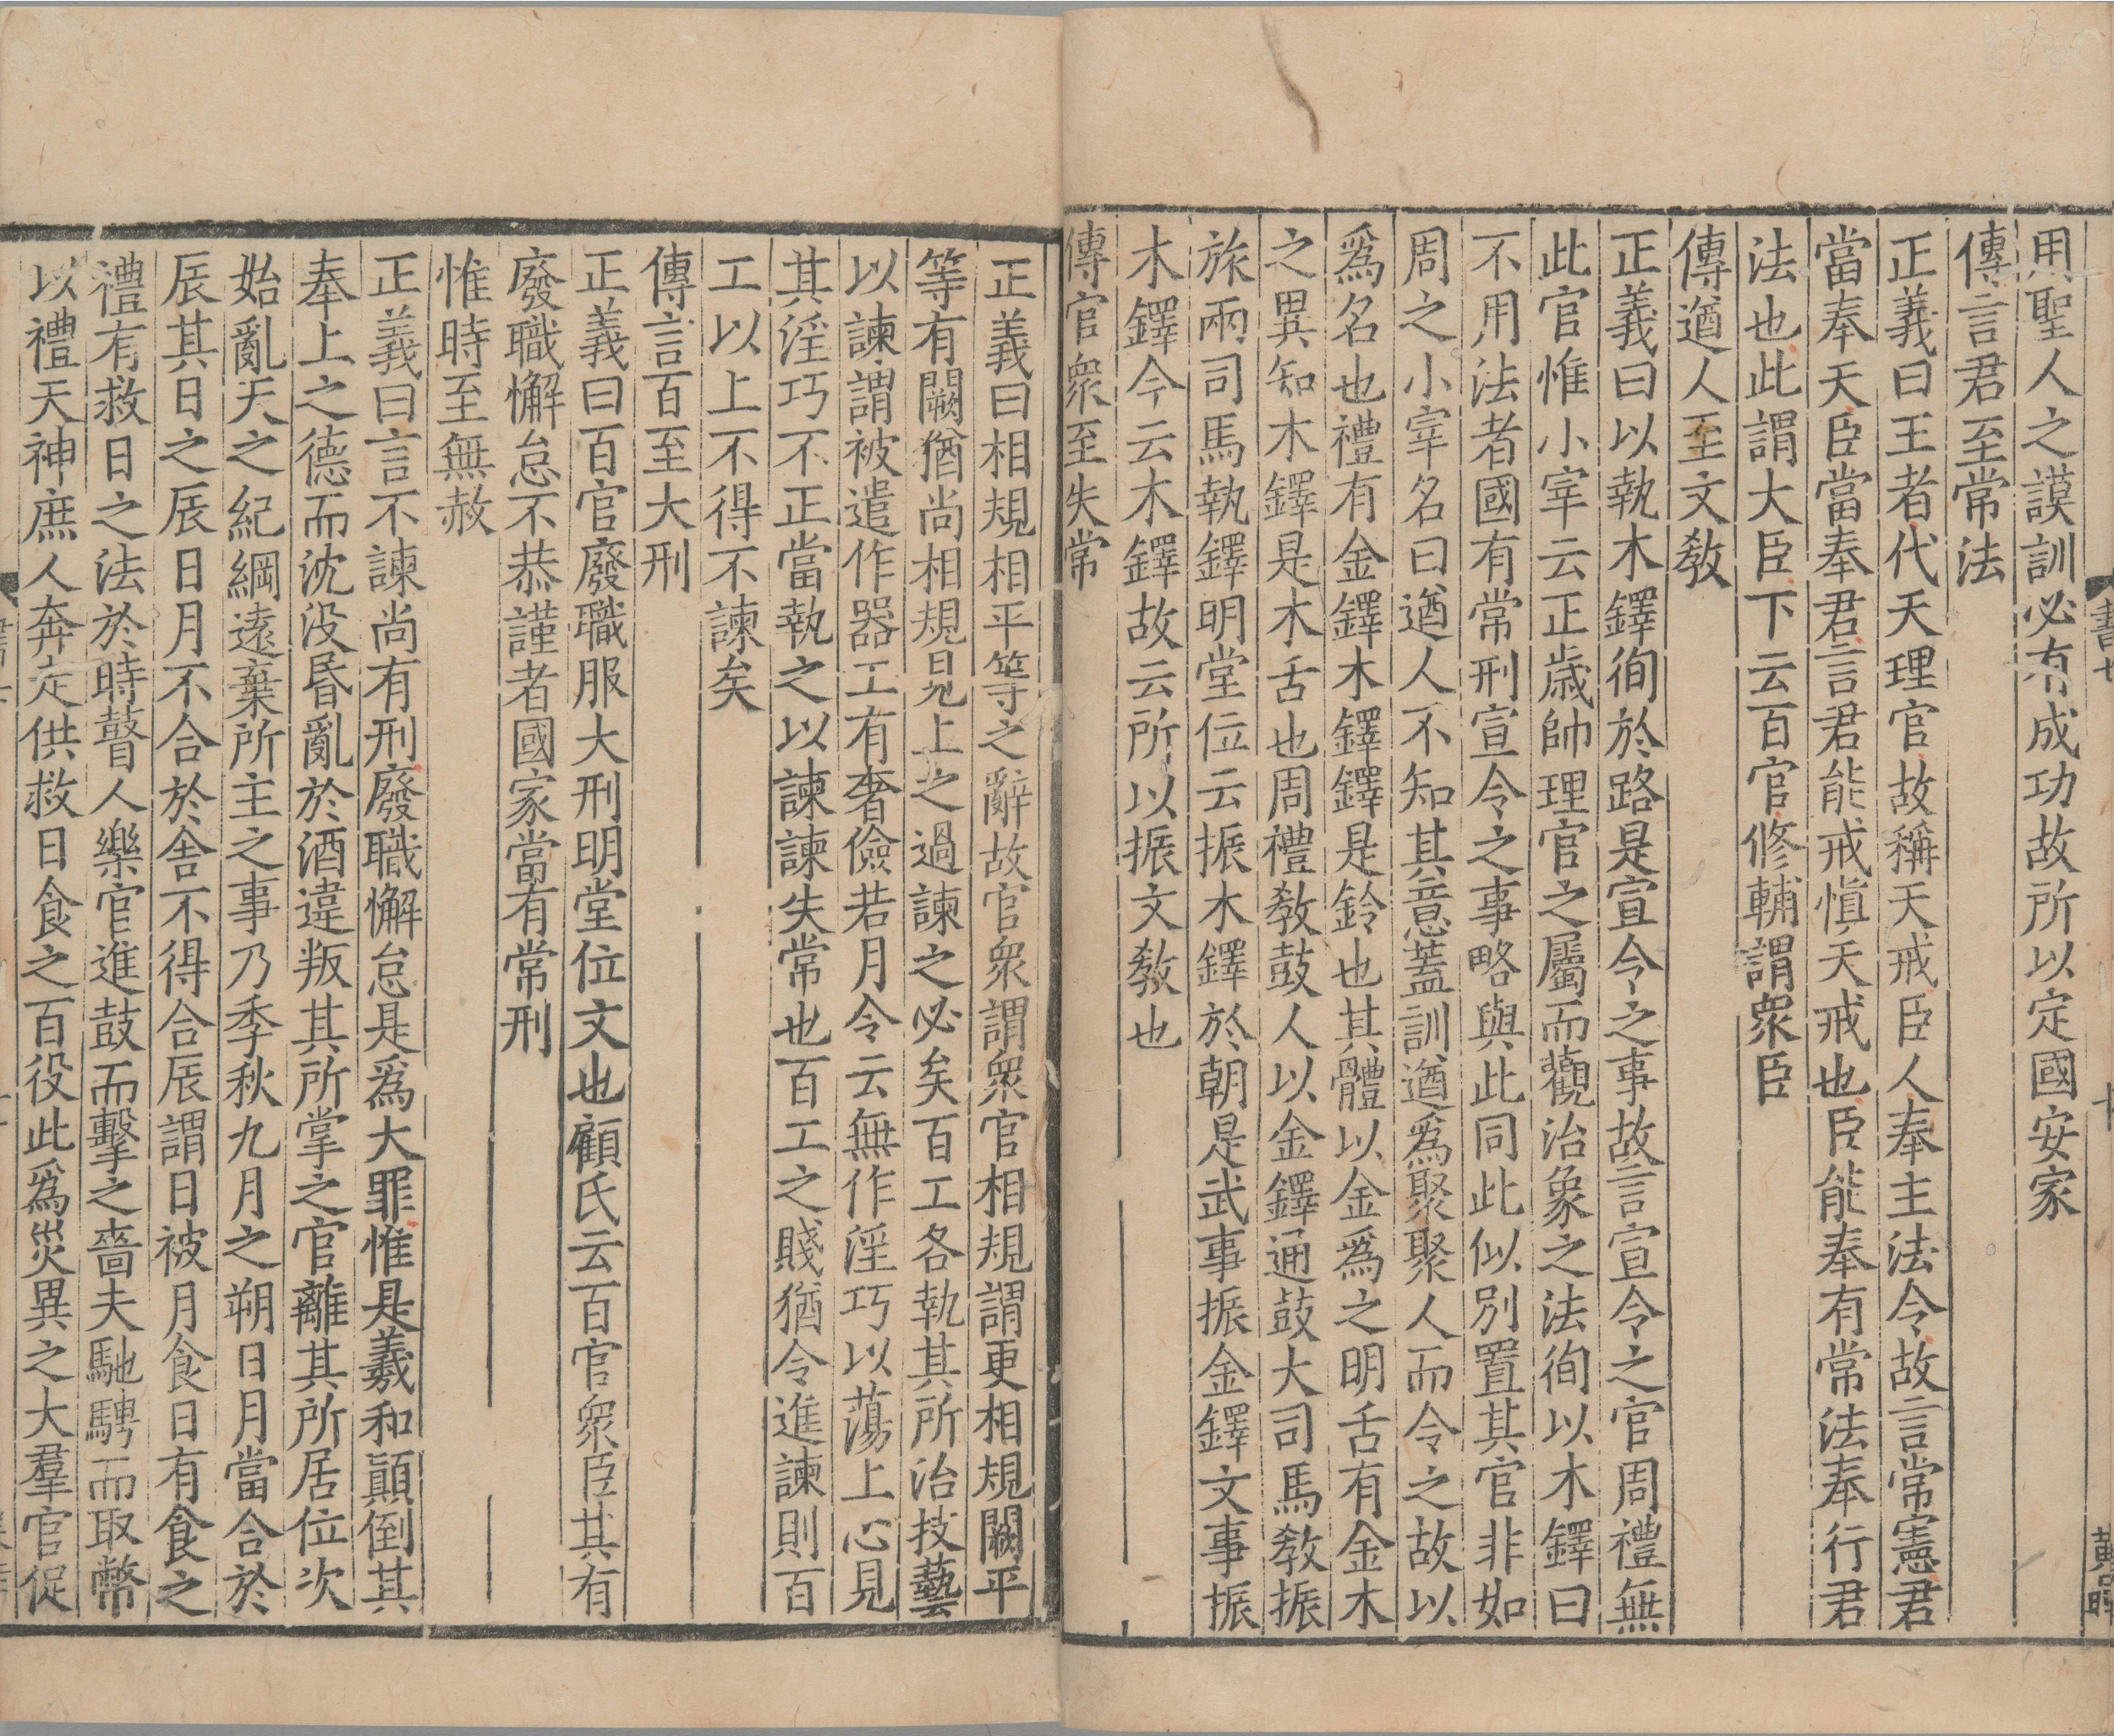 書七
十
黄暉
用聖人之謨訓必有成功故所以定國安家
傳言君至常法
正義曰王者代天理官故稱天戒臣人奉主法令故言常憲君
當奉天臣當奉君言君能戒慎天戒也臣能奉有常法奉行君
法也此謂大臣下云百官修輔謂衆臣
傳遒人至文敎
正義曰以執木鐸徇於路是宣令之事故言宣令之官周禮無
此官惟小宰云正歳帥理官之屬而觀治象之法徇以木鐸曰
不用法者國有常刑宣令之事略與此同此似别置其官非如
周之小宰名曰遒人不知其意蓋訓遒爲聚聚人而令之故以
爲名也禮有金鐸木鐸鐸是鈴也其體以金爲之明舌有金木
之異知木鐸是木舌也周禮敎鼓人以金鐸通鼓大司馬敎振
旅兩司馬執鐸明堂位云振木鐸於朝是武事振金鐸文事振
木鐸今云木鐸故云所以振文敎也
傳官衆至失常
正義曰相規相平等之辭故官衆謂衆官相規謂更相規闕平
等有闕猶尚相規見上之過諫之必矣百工各執其所治技藝
以諫謂被遣作器工有奢儉若月令云無作淫巧以蕩上心見
其淫巧不正當執之以諫諫失常也百工之賤猶令進諫則百
工以上不得不諫矣
傳言百至大刑
正義曰百官廢職服大刑明堂位文也顧氏云百官衆臣其有
廢職懈怠不恭謹者國家當有常刑
惟時至無赦
正義曰言不諫尚有刑廢職懈怠是爲大罪惟是羲和顛倒其
奉上之德而沈没昬亂於酒違叛其所掌之官離其所居位次
始亂天之紀綱遠棄所主之事乃季秋九月之朔日月當合於
辰其日之辰日月不合於舍不得合辰謂日被月食日有食之
禮有救日之法於時瞽人樂官進鼓而擊之嗇夫馳騁而取幣
以禮天神庶人奔走供救日食之百役此爲災異之大羣官促